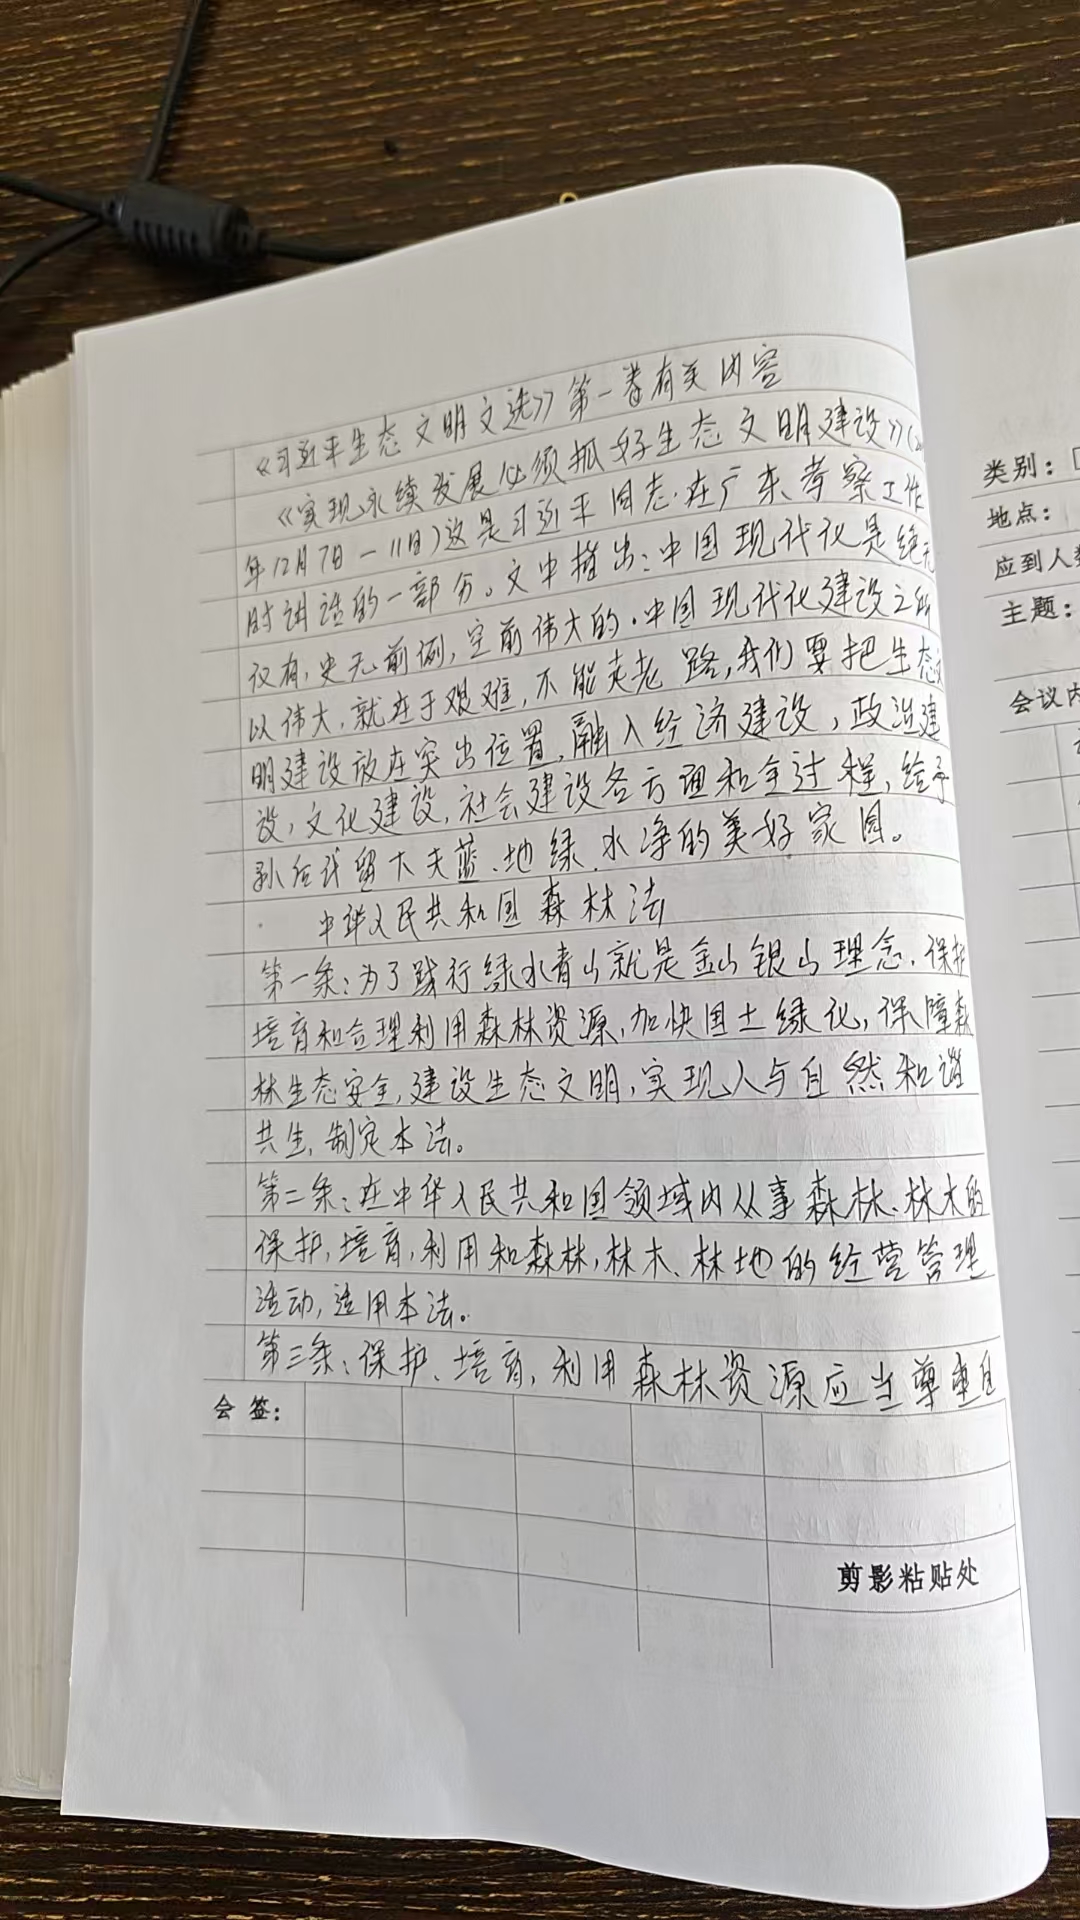 《习近平生态文明文选》第一卷有关内容
《实现永续发展必须抓好生态文明建设》(20
年12月7日—11日)这是习近平同志在广东考察工作
时讲话的一部分。文中指出:中国现代化是绝无
仅有,史无前例,空前伟大的.中国现代化建设之所
以伟大,就在于艰难,不能走老路,我们要把生态文
明建设放在突出位置,融入经济建设,政治建
设,文化建设,社会建设各方面和全过程,给子
孙后代留天蓝、地绿、水净的美好家园。
中华人民共和国森林法
第一条:为了践行绿水青山就是金山银山理念,保护
培育和合理利用森林资源,加快国土绿化,保障森
林生态安全,建设生态文明,实现人与自然和谐
共生,制定本法。
第二条:在中华人民共和国领域内从事森林、林木的
保护,培育,利用和森林,林木、林地的经营管理
活动,适用本法。
第三条:保护、培育,利用森林资源应当尊重自
会签:
剪影粘贴处
类别:
地点:
应到人数
主题:
会议内